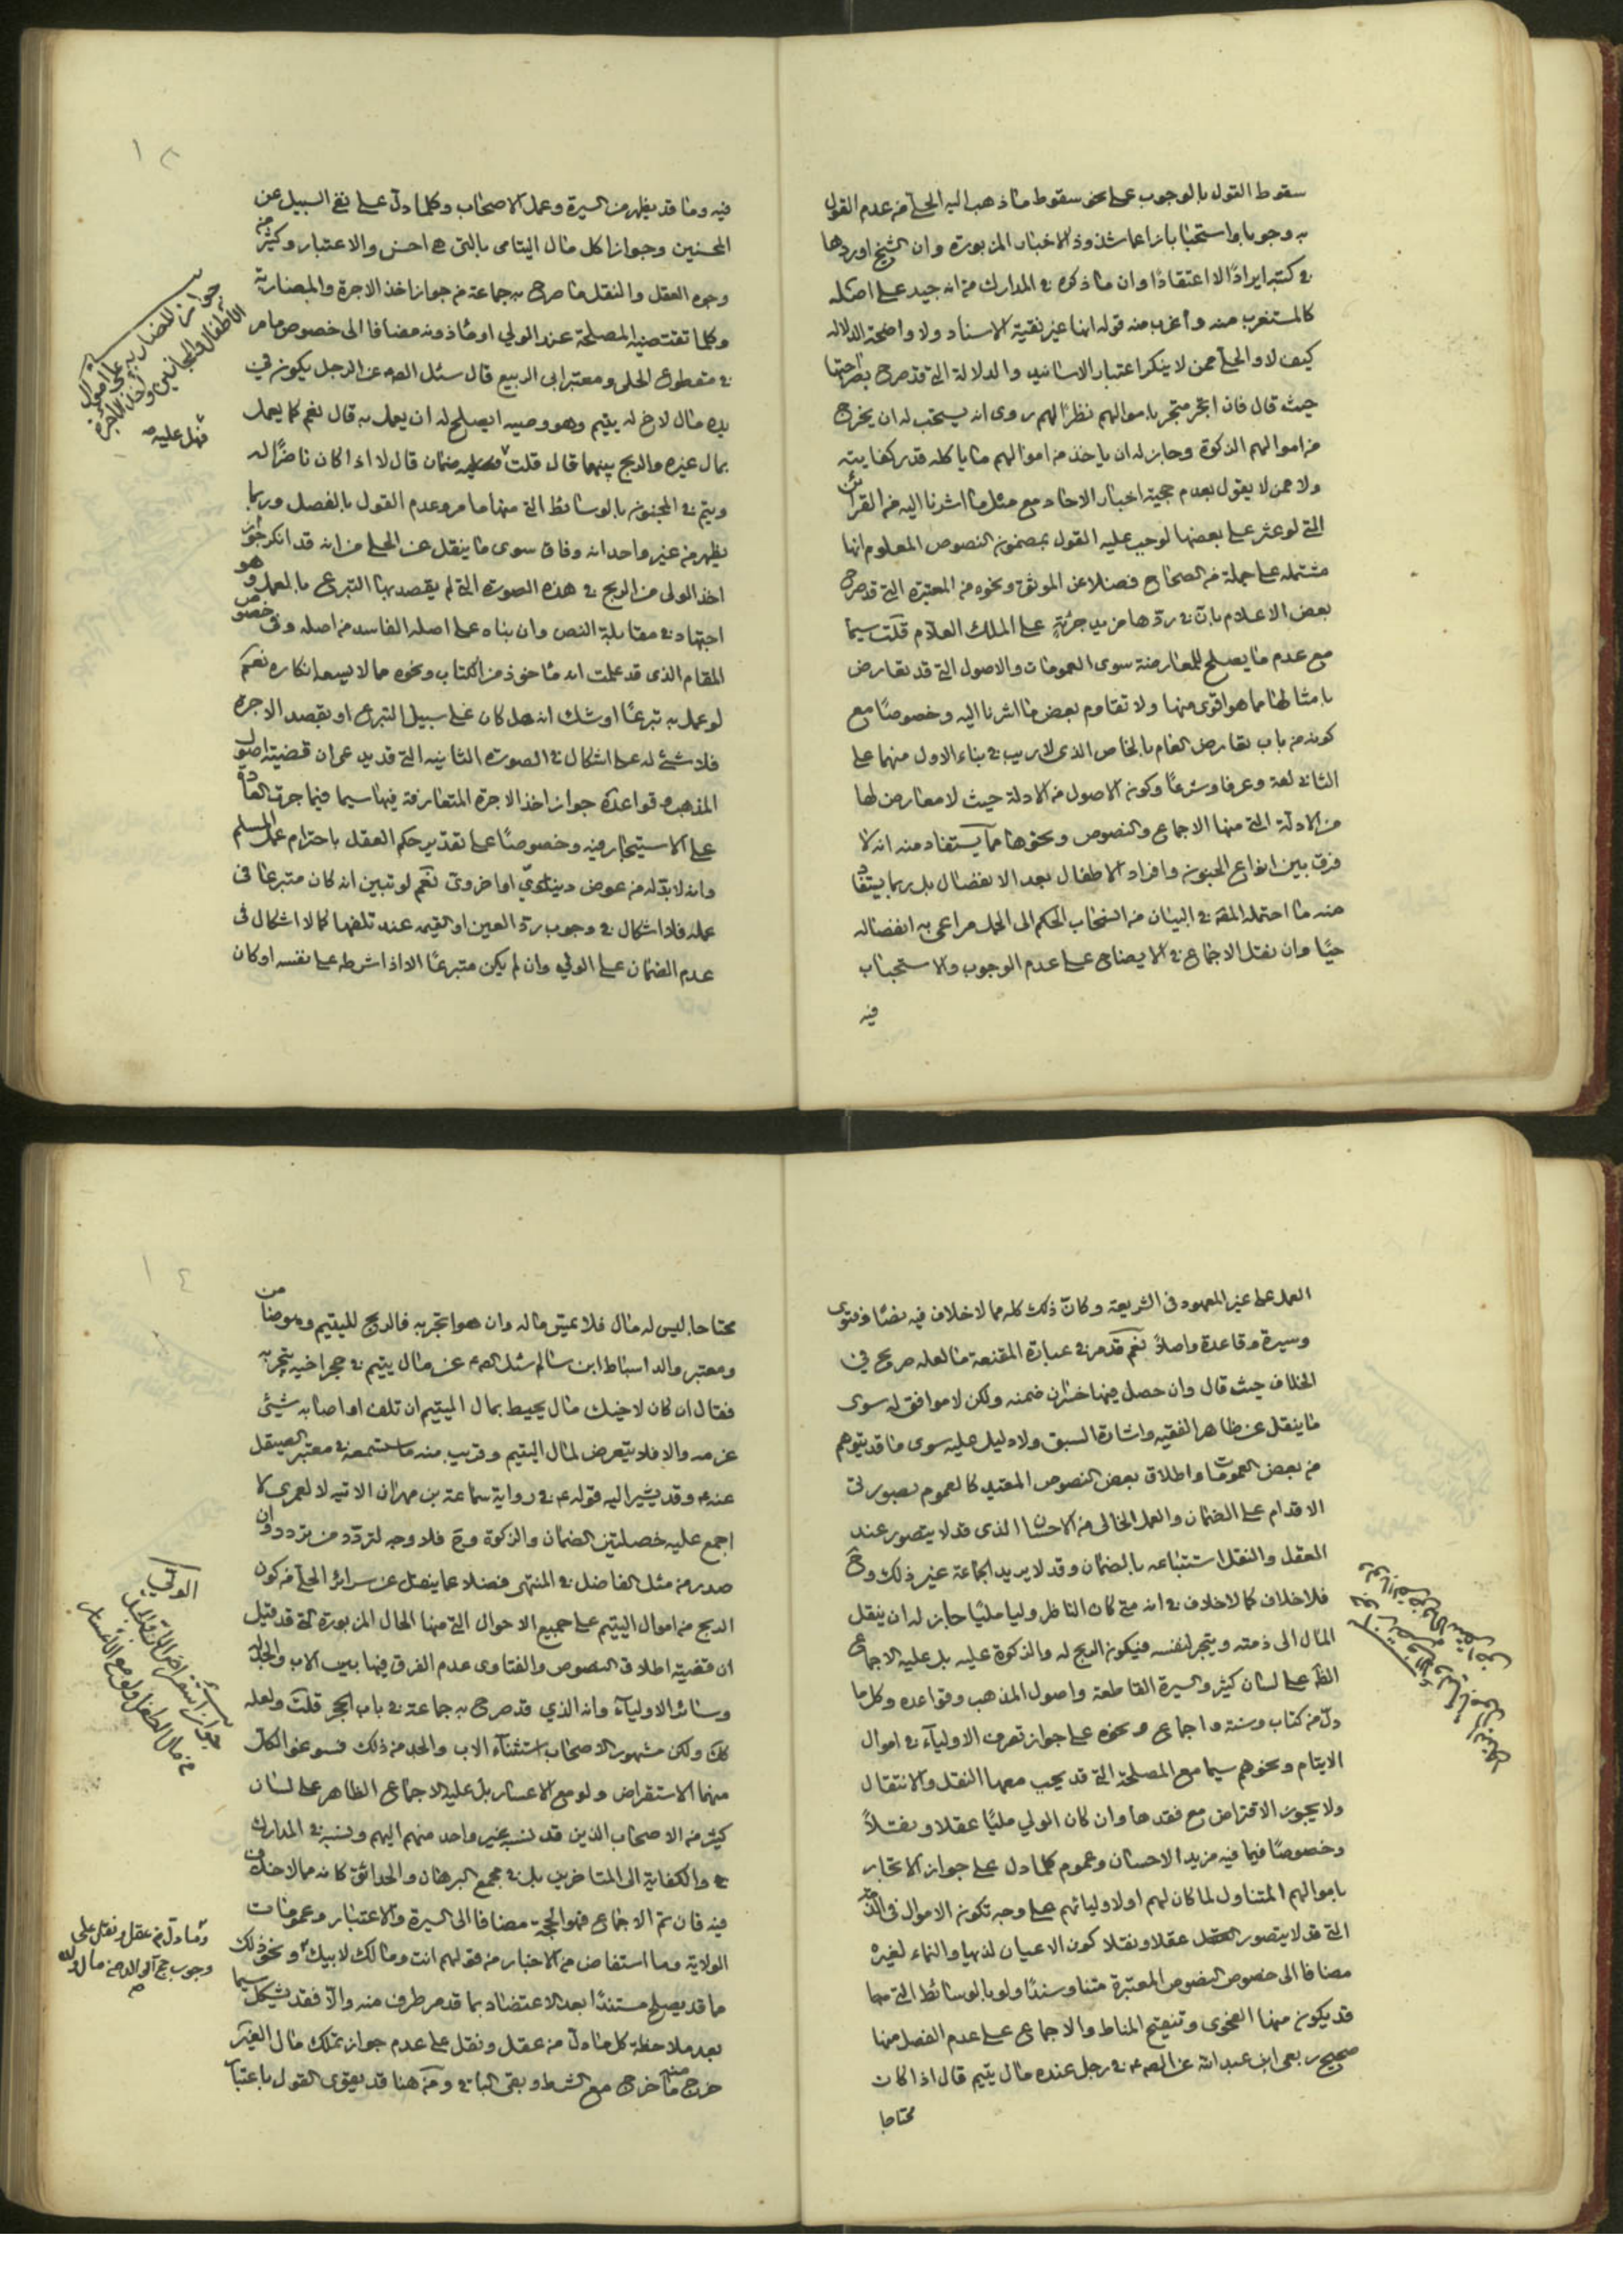 سقوط القول بالوجوب على نحو سقوط ما ذهب اليه الحلي من عدم القول
به وجوبا واستحبابا زاعما شذوذ الاخبار المزبورة وان الشيخ اوردها
في كتبه ايرادًا لا اعتقادًا وان ما ذكره في المدارك من انه جيد على اصله
كالمستغرب منه واغرب منه قوله انها غير نقية الاسناد ولا واضحة الدلالة
كيف لا والحلي ممن لا ينكر اعتبار الاسانيد والدلالة التي قد صرح بصراحتها
حيث قال فان اتجر متجر باموالهم نظرًا لهم روى انه يستحب له ان يخرج
من اموالهم الزكوة وجاز له ان ياخذ من اموالهم ما ياكله قدر كفايته
ولا ممن لا يقول بعدم حجية اخبار الاحاد مع مثل ما اشرنا اليه من القرائن
التي لو عثر على بعضها لوجب عليه القول بمضمون النصوص المعلوم انها
مشتملة على جملة من الصحاح فضلا عن الموثق ونحوه من المعتبرة التي قد صرح
بعض الاعلام بان في ردها مزيد جرئة على الملك العلام قلت سيما
مع عدم ما يصلح للمعارضة سوى العمومات والاصول التي قد تعارض
بامثالها مما هو اقوى منها ولا تقاوم بعض ما اشرنا اليه وخصوصًا مع
كونه من باب تعارض العام بالخاص الذي لا ريب في بناء الاول منهما على
الثاني لغة وعرفا وشرعًا وكون الاصول من الادلة حيث لا معارض لها
من الادلة التي منها الاجماع والنصوص ونحوها مما يستفاد منه انه لا
فرق بين انواع الجنون وافراد الاطفال بعد الانفصال بل ربما يستفاد
منه ما احتمله الفقه في البيان من انسحاب الحكم الى الحمل مراعى به انفصاله
حيًا وان نقل الاجماع في الايضاح على عدم الوجوب والاستحباب
فيه
فيه وما قد يظهر من السيرة وعمل الاصحاب وكلما دل على نفي السبيل عن
المحسنين وجواز اكل مال اليتامى بالتي هي احسن والاعتبار وكثير من
وجوه العقل والنقل ما صرح به جماعة من جواز اخذ الاجرة والمضاربة
وكلما تقتضيه المصلحة عند الولي او ماذونه مضافا الى خصوص ما مر
في مقطوع الحلي ومعتبر ابي الربيع قال سئل الصم عن الرجل يكون في
يده مال لاخ له يتيم وهو وصيه ايصلح له ان يعمل به قال نعم كما يعمل
بمال غيره والربح بينهما قال قلت فهل عليه ضمان قال لا اذا كان ناظرًا له
ويتم في المجنون بالوسائط التي منها ما مر وعدم القول بالفصل وربما
يظهر من غير واحد انه وفاق سوى ما ينقل عن الحلي من انه قد انكر جواز
اخذ الولي من الربح في هذه الصورة التي لم يقصد بها التبرع بالعمل وهو
اجتهاد في مقابلة النص وان بناه على اصله الفاسد من اصله وفي خصوص
المقام الذي قد علمت انه ماخوذ من الكتاب ونحوه مما لا يسعه انكاره نعم
لو عمل به تبرعًا او شك انه هل كان على سبيل التبرع او بقصد الاجرة
فلا شئ له على اشكال في الصورة الثانية التي قد يدعى ان قضية اصول
المذهب وقواعده جواز اخذ الاجرة المتعارفة فيها سيما فيما جرت العادة
على الاستيجار فيه وخصوصًا على تقدير حكم العقل باحترام عمل المسلم
وانه لا بد له من عوض دنياوي او اخروي نعم لو تبين انه كان متبرعًا في
عمله فلا اشكال في وجوب رد العين او القيمه عند تلفها كما لا اشكال في
عدم الضمان على الولي وان لم يكن متبرعًا الا اذا شرطه على نفسه او كان
جواز المضاربة على اموال
الاطفال والمجانين واخذ الاجرة
فهل عليه
١٢
العمل على غير المعهود في الشريعة وكان ذلك كله مما لا خلاف فيه نصًا وفتوى
وسيرة وقاعدة واصلاً نعم قد مر في عبارة المقنعة ما لعله صريح في
الخلاف حيث قال وان حصل فيها خسران ضمنه ولكن لا موافق له سوى
ما ينقل عن ظاهر الفقيه واشارة السبق ولا دليل عليه سوى ما قد يتوهم
من بعض العمومات واطلاق بعض النصوص المقتيد كالعموم بصورتي
الاقدام على الضمان والعمل الخالي من الاحسان الذي قد لا يتصور عند
العقل والنقل استتباعه بالضمان وقد لا يريد الجماعة غير ذلك وح
فلا خلاف كما لا خلاف في انه متى كان الناظر وليا مليًا جاز له ان ينقل
المال الى ذمته ويتجر لنفسه فيكون الربح له والزكوة عليه بل عليه الاجماع
الظ على لسان كثير والسيرة القاطعة واصول المذهب وقواعده وكل ما
دل من كتاب وسنة واجماع ونحوه على جواز تصرف الاولياء في اموال
الايتام ونحوهم سيما مع المصلحة التي قد يجب معها النقل والانتقال
ولا يجوز الاقتراض مع فقدها وان كان الولي مليًا عقلا ونقلاً
وخصوصًا فيما فيه مزيد الاحسان وعموم كلما دل على جواز الاتجار
باموالهم المتناول لما كان لهم او لاوليائهم على وجه تكون الاموال في الذمة
التي قد لا يتصور العقل عقلا ونقلا كون الاعيان لذيها والنماء لغيره
مضافا الى خصوص النصوص المعتبرة متنا وسندًا ولو بالوسائط التي مما
قد يكون منها الفحوى وتنقيح المناط والاجماع على عدم الفصل منها
صحيح ربعي ابن عبد الله عن الصم في رجل عنده مال يتيم قال اذا كان
محتاجا
محتاجا ليس له مال فلا يمس ماله وان هو اتجر به فالربح لليتيم وهو ضامن
ومعتبر والد اسباط ابن سالم سئل الصم عن مال يتيم في حجر اخيه يتجر به
فقال ان كان لاخيك مال يحيط بمال اليتيم ان تلف او اصابه شيئ
غرمه والا فلا يتعرض لمال اليتيم وقريب منه ما ستسمعه في معتبر الصيقل
عنه وقد يشير اليه قوله في رواية سماعة بن مهران الاتيه لا لعمري لا
اجمع عليه خصلتين الضمان والزكوة وح فلا وجه لتردد من تردد وان
صدر من مثل الفاضل في المنتهى فضلا عما ينقل عن سرائر الحلي من كون
الربح من اموال اليتيم على جميع الاحوال التي منها الحال المزبورة التي قد قيل
ان قضية اطلاق النصوص والفتاوى عدم الفرق فيها بين الاب والجد
وسائر الاولياء وانه الذي قد صرح به جماعة في باب الحجر قلت ولعله
كك ولكن مشهور الاصحاب استثناء الاب والجد من ذلك فسوغوا لكل
منهما الاستقراض ولو مع الاعسار بل عليه الاجماع الظاهر على لسان
كثير من الاصحاب الذين قد نسبه غير واحد منهم اليهم ونسبه في المدارك
والكفاية الى المتاخرين بل في مجمع البرهان والحدائق كانه مما لا خلاف
فيه فان تم الاجماع فهو الحجة مضافا الى السيرة والاعتبار وعمومات
الولاية وما استفاض من الاخبار من قولهم انت ومالك لابيك ونحو ذلك
ما قد يصلح مستندًا بعد الاعتضاد بما قد مر طرف منه والا فقد يشكل سيما
بعد ملاحظة كل ما دل من عقل ونقل على عدم جواز تملك مال الغير
خرج منه ما خرج مع الشرط وبقي الباقي ومن هنا قد يقوى القول باعتبار
جواز استقراض الولي
من مال الطفل ولو مع الاعسار
وما دل من عقل ونقل على
وجوب حج الوالد من مال ولده
١٤